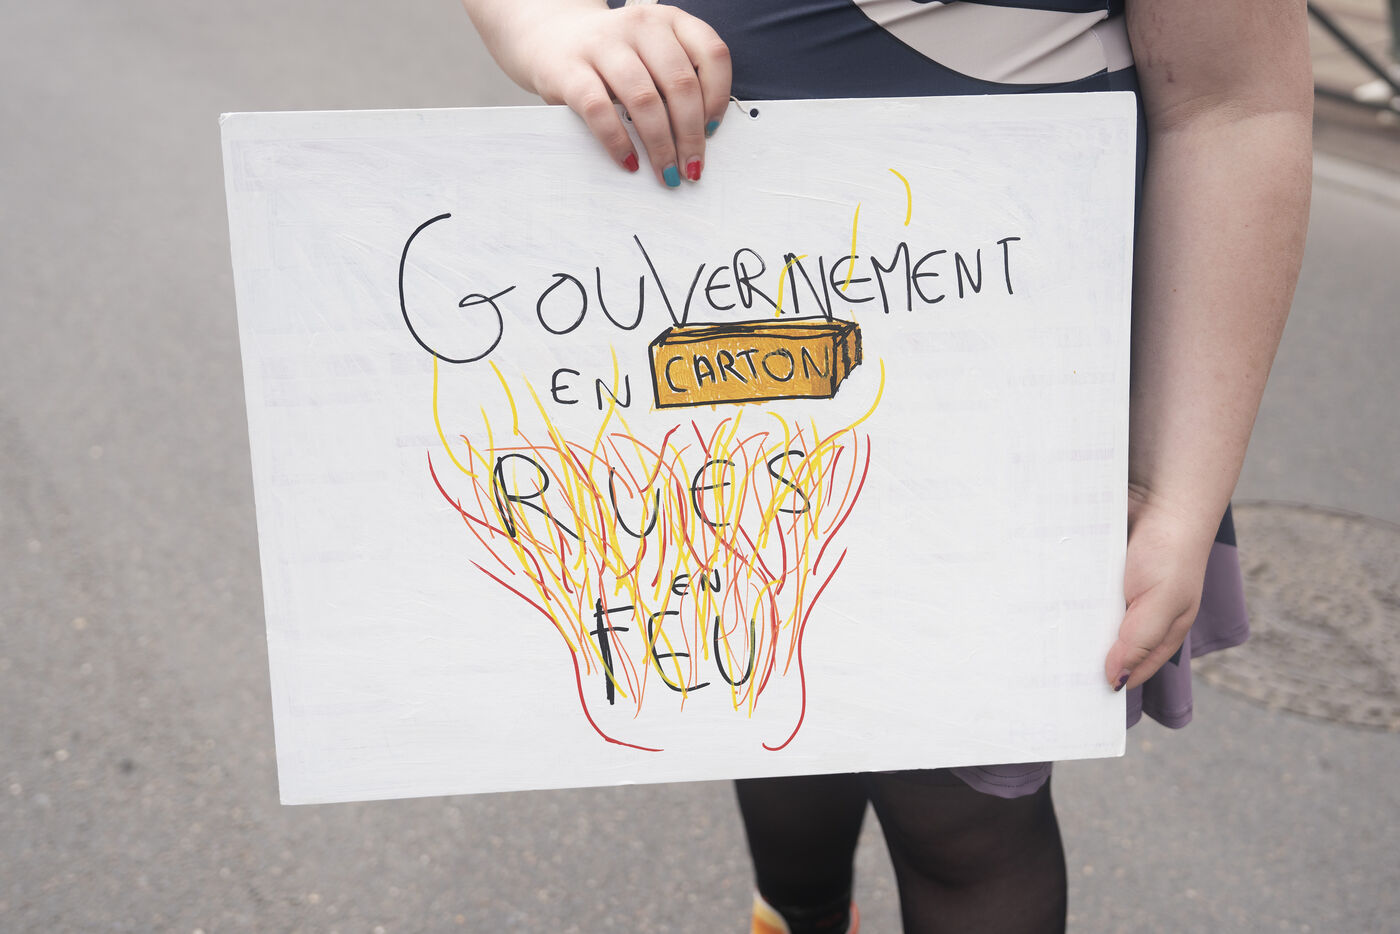 GOUVERNEMENT
EN CARTON
RUES
EN
FEU